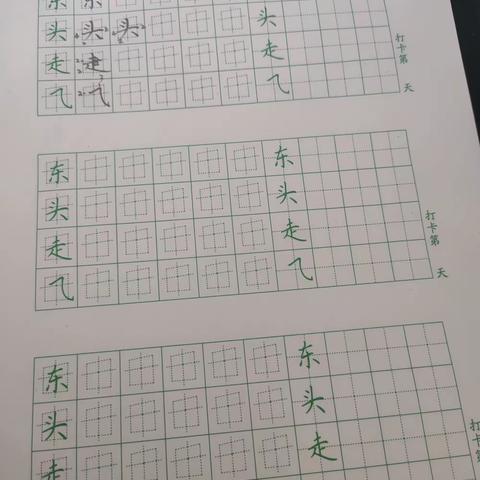 东 东
头 头 头 头
走 走 走
乁 乁 乁
打卡第 天
东 东
头 头
走 走
乁 乁
打卡第 天
东 东
头 头
走 走
打卡第